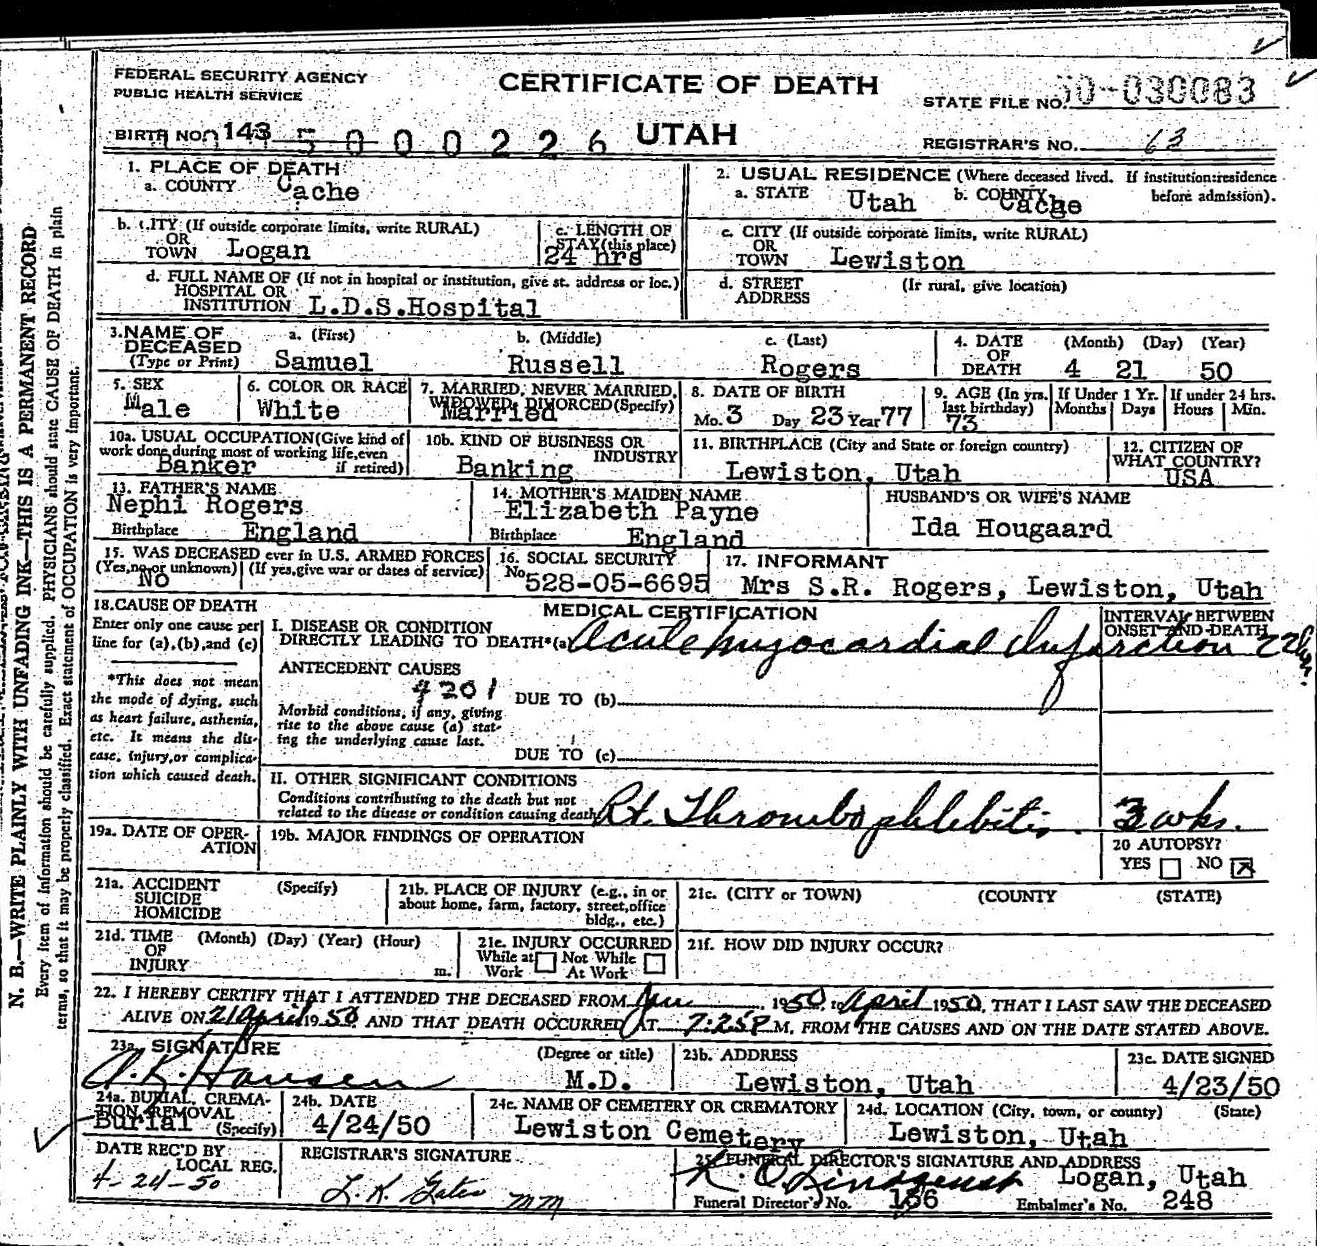 FEDERAL SECURITY AGENCY
PUBLIC HEALTH SERVICE
CERTIFICATE OF DEATH
UTAH
STATE FILE NO. 50-030083
BIRTH NO. 143 5 0 0 0 2 2 6
REGISTRAR'S NO. 63
1. PLACE OF DEATH
a. COUNTY Cache
2. USUAL RESIDENCE (Where deceased lived. If institution:residence before admission).
a. STATE Utah b. COUNTY Cache
b. CITY (If outside corporate limits, write RURAL)
OR
TOWN Logan
c. LENGTH OF
STAY (this place)
24 hrs
c. CITY (If outside corporate limits, write RURAL)
OR
TOWN Lewiston
d. FULL NAME OF (If not in hospital or institution, give st. address or loc.)
HOSPITAL OR
INSTITUTION L.D.S.Hospital
d. STREET (If rural, give location)
ADDRESS
3. NAME OF DECEASED
(Type or Print)
a. (First) Samuel
b. (Middle) Russell
c. (Last) Rogers
4. DATE OF DEATH (Month) (Day) (Year)
4 21 50
5. SEX
Male
6. COLOR OR RACE
White
7. MARRIED, NEVER MARRIED,
WIDOWED, DIVORCED (Specify)
Married
8. DATE OF BIRTH
Mo. 3 Day 23 Year 77
9. AGE (In yrs. last birthday)
73
If Under 1 Yr.
Months Days
If under 24 hrs.
Hours Min.
10a. USUAL OCCUPATION (Give kind of work done during most of working life, even if retired)
Banker
10b. KIND OF BUSINESS OR INDUSTRY
Banking
11. BIRTHPLACE (City and State or foreign country)
Lewiston, Utah
12. CITIZEN OF WHAT COUNTRY?
USA
13. FATHER'S NAME
Nephi Rogers
Birthplace England
14. MOTHER'S MAIDEN NAME
Elizabeth Payne
Birthplace England
HUSBAND'S OR WIFE'S NAME
Ida Hougaard
15. WAS DECEASED ever in U.S. ARMED FORCES
(Yes, no or unknown) (If yes, give war or dates of service)
No
16. SOCIAL SECURITY
No. 528-05-6695
17. INFORMANT
Mrs S.R. Rogers, Lewiston, Utah
18. CAUSE OF DEATH
Enter only one cause per line for (a), (b), and (c)
*This does not mean the mode of dying, such as heart failure, asthenia, etc. It means the disease, injury, or complication which caused death.
MEDICAL CERTIFICATION
INTERVAL BETWEEN ONSET AND DEATH
I. DISEASE OR CONDITION
DIRECTLY LEADING TO DEATH* (a) Acute myocardial Infarction 22 hrs.
ANTECEDENT CAUSES
4201
DUE TO (b)
Morbid conditions, if any, giving rise to the above cause (a) stating the underlying cause last.
DUE TO (c)
II. OTHER SIGNIFICANT CONDITIONS
Conditions contributing to the death but not related to the disease or condition causing death
Rt. Thrombophlebitis 3 wks.
19a. DATE OF OPERATION
19b. MAJOR FINDINGS OF OPERATION
20 AUTOPSY?
YES NO
21a. ACCIDENT (Specify)
SUICIDE
HOMICIDE
21b. PLACE OF INJURY (e.g., in or about home, farm, factory, street, office bldg., etc.)
21c. (CITY or TOWN) (COUNTY) (STATE)
21d. TIME (Month) (Day) (Year) (Hour)
OF
INJURY m.
21e. INJURY OCCURRED
While at Work Not While At Work
21f. HOW DID INJURY OCCUR?
22. I HEREBY CERTIFY THAT I ATTENDED THE DECEASED FROM Jan 1950, to April 1950, THAT I LAST SAW THE DECEASED
ALIVE ON 21 April 1950, AND THAT DEATH OCCURRED AT 7:25 P M, FROM THE CAUSES AND ON THE DATE STATED ABOVE.
23a. SIGNATURE (Degree or title)
M.D.
23b. ADDRESS
Lewiston, Utah
23c. DATE SIGNED
4/23/50
24a. BURIAL, CREMATION, REMOVAL (Specify)
Burial
24b. DATE
4/24/50
24c. NAME OF CEMETERY OR CREMATORY
Lewiston Cemetery
24d. LOCATION (City, town, or county) (State)
Lewiston, Utah
DATE REC'D BY LOCAL REG.
4-24-50
REGISTRAR'S SIGNATURE
25. FUNERAL DIRECTOR'S SIGNATURE AND ADDRESS
Logan, Utah
Funeral Director's No. 136 Embalmer's No. 248
N. B.—WRITE PLAINLY WITH UNFADING INK—THIS IS A PERMANENT RECORD
Every item of information should be carefully supplied. PHYSICIANS should state CAUSE OF DEATH in plain
terms, so that it may be properly classified. Exact statement of OCCUPATION is very important.